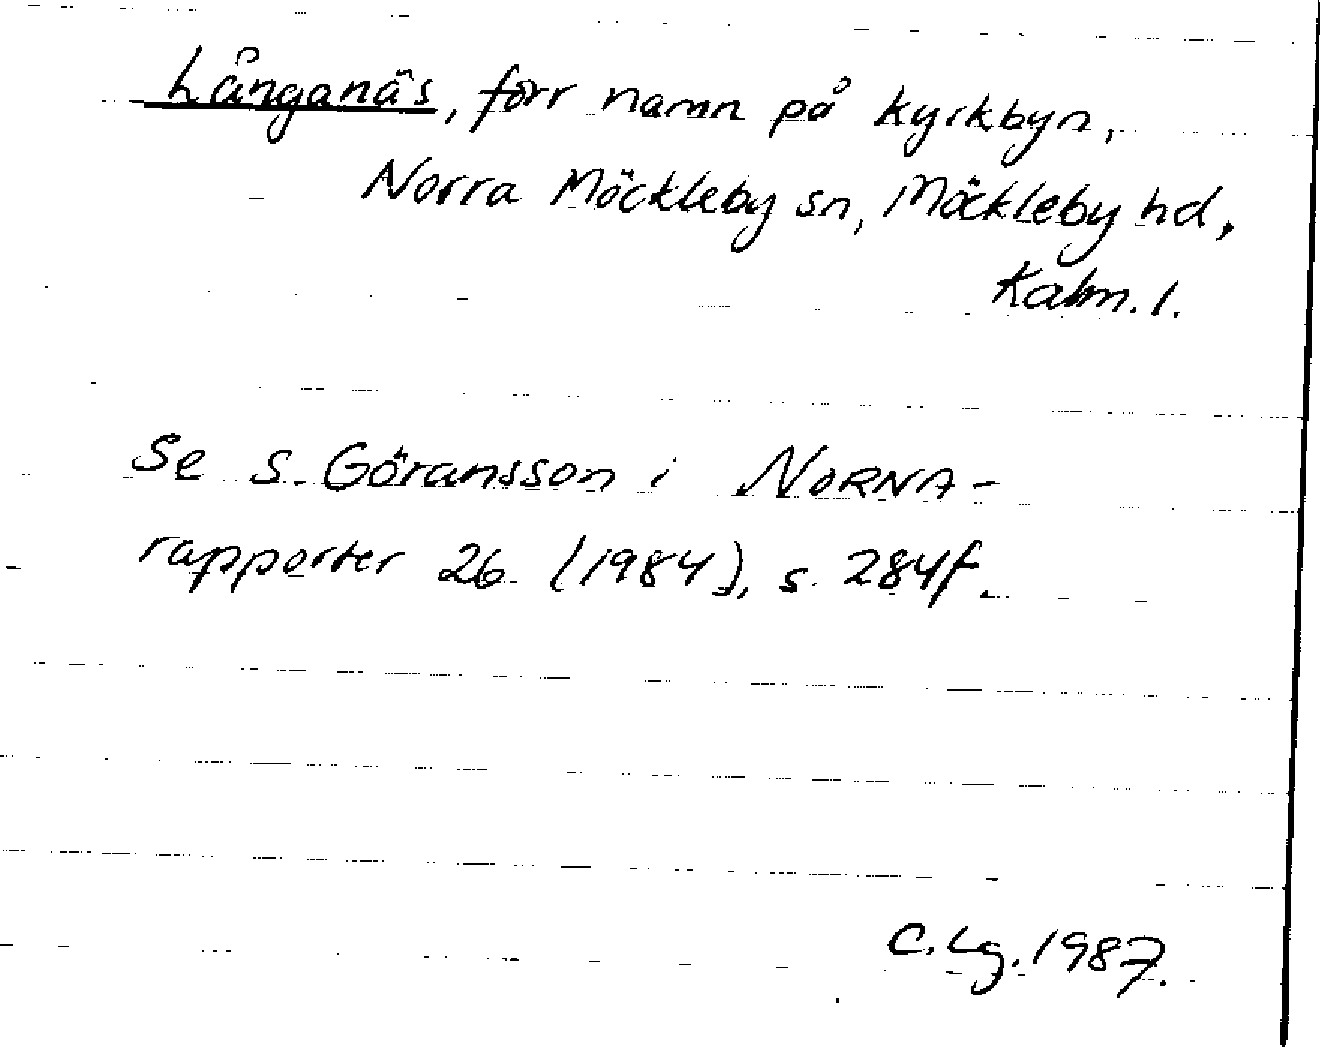 Långanäs, förr namn på kyrkbyn,
Norra Möckleby sn, Möckleby hd,
Kalm. l.
Se S. Göransson i NORNA-
rapporter 26 (1984), s. 284f.
C. Lg. 1987.